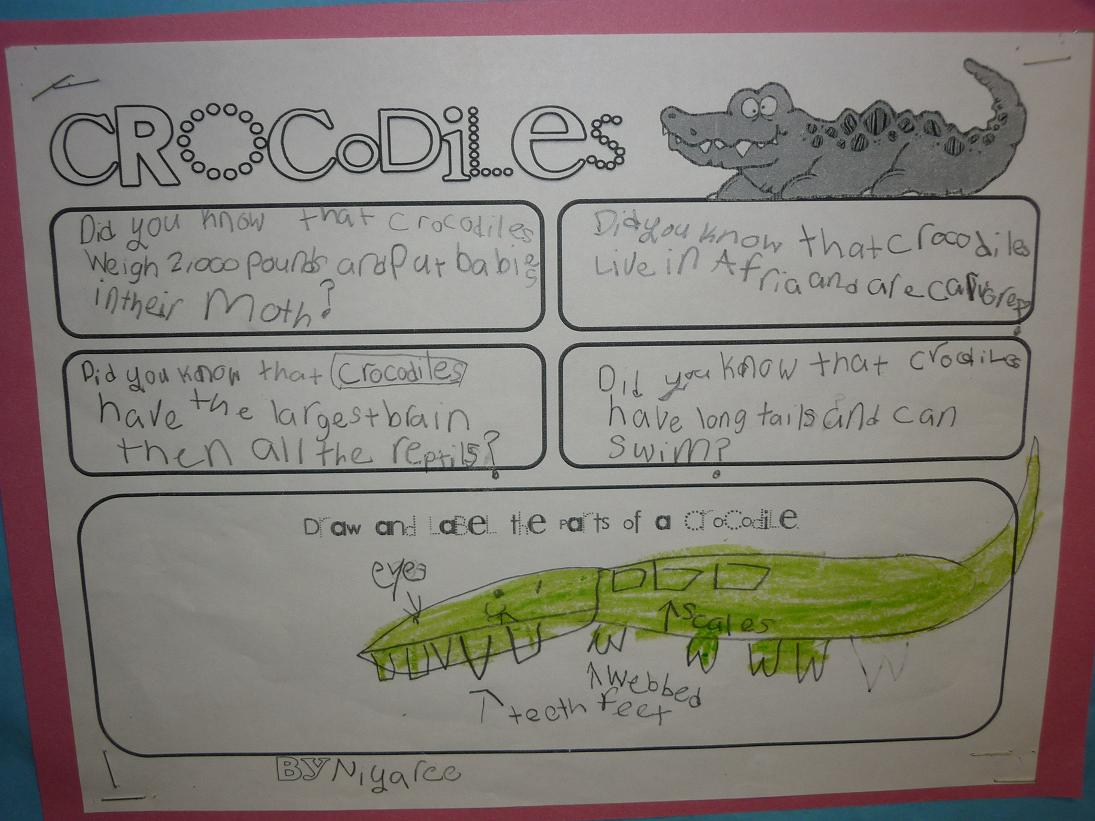 CROCODiLes
Did you know that crocodiles
Weigh 2,000 pounds and Put babies
in their Moth?
Did you know that crocodiles
Live in Afria and are
Did you know that crocodiles
have the largest brain
then all the reptils?
Did you know that crocodiles
have long tails and can
swim?
Draw and LaBeL the Parts of a CroCoDiLe
eyes
scales
Webbed
feet
teeth
BY Niyaree